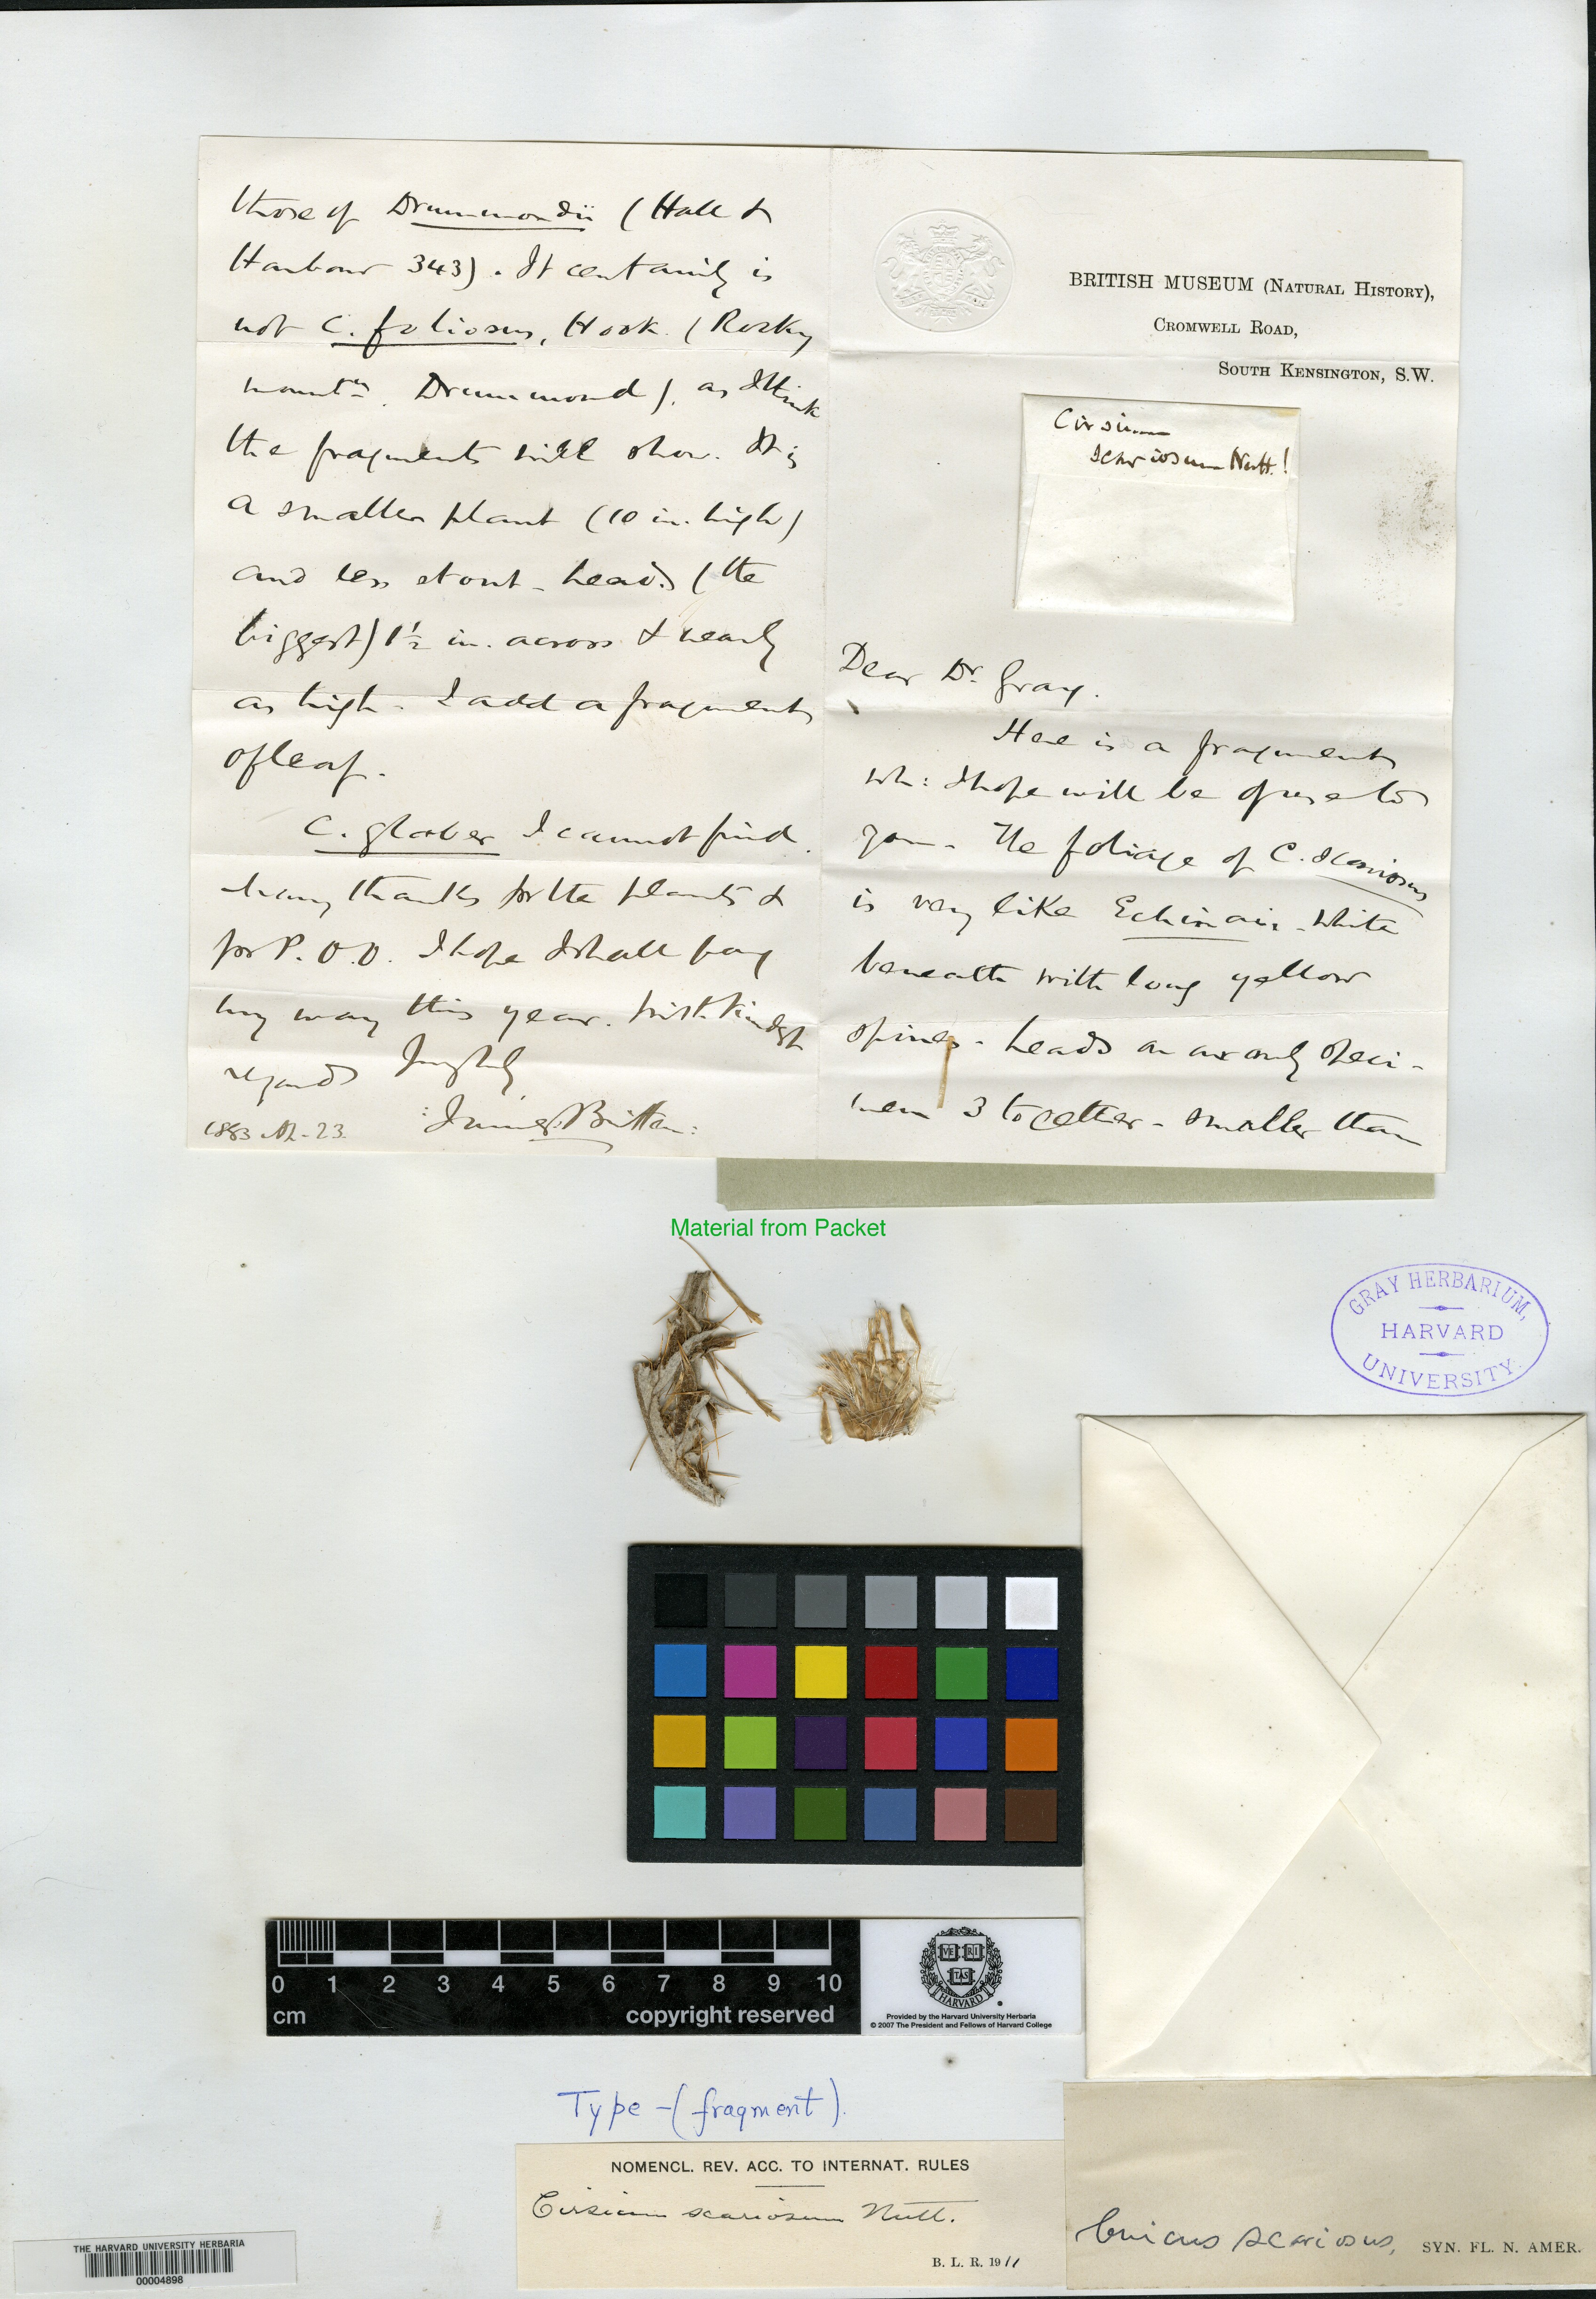 BRITISH MUSEUM (NATURAL HISTORY),
CROMWELL ROAD,
SOUTH KENSINGTON, S.W.
Cirsium
scariosum Nutt!
Dear Dr. Gray.
Here is a fragment
wh: I hope will be of use to
you. The foliage of C. scariosus
is very like Echinais. White
beneath with long yellow
spines - heads on our only speci-
men 3 together - smaller than
those of Drummondii (Hall &
Harbour 343). It certainly is
not C. foliosus, Hook. (Rocky
mountns. Drummond), as I think
the fragments will show. It is
a smaller plant (10 in. high)
and less stout - heads (the
biggest) 1½ in. across & nearly
as high. I add a fragment
of leaf.
C. glaber I cannot find.
Many thanks for the plants &
for P.O.O. I hope I shall pay
my way this year. With kindest
regards
James Britten:
1883 23.
Material from Packet
GRAY HERBARIUM,
HARVARD
UNIVERSITY.
0 1 2 3 4 5 6 7 8 9 10
cm copyright reserved
VE RI TAS
HARVARD
Provided by the Harvard University Herbaria
© 2007 The President and Fellows of Harvard College
Type - (fragment).
NOMENCL. REV. ACC. TO INTERNAT. RULES
Cirsium scariosum Nutt.
B. L. R. 1911
Cnicus scariosus, SYN. FL. N. AMER.
THE HARVARD UNIVERSITY HERBARIA
00004898